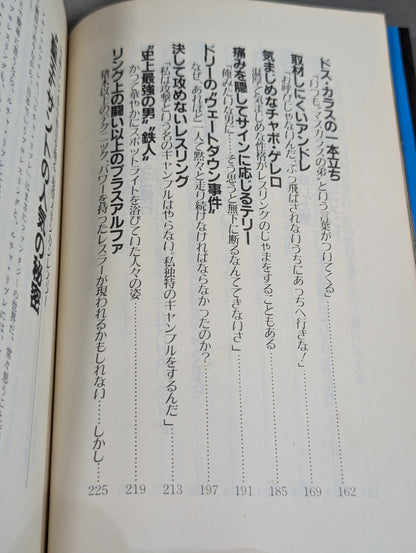 ドス・カラスの一本立ち
「いつも"マスカラスの弟"という言葉がついてくる」……162
取材しにくいアンドレ
「お呼びじゃないんだ。ぶっ飛ばされないうちにあっちへ行きな！」……169
気まじめなチャボ・ゲレロ
温厚で気まじめな性格がレスリングのじゃまをすることもある……185
痛みを隠してサインに応じるテリー
「俺みたいな男に……そう思うと無下に断るなんてできないさ」……191
ドリーの"ウェートダウン事件"
なぜ、あれほど一人で黙々と走り続けなければならなかったのか？……197
決して攻めないレスリング
「私は攻撃という名のギャンブルはやらない。私独特のギャンブルをするんだ」……213
"史上最強の男""鉄人"
かつて華やかにスポットライトを浴びていた人々の姿……219
リング上の闘い以上のプラスアルファ
猪木以上のテクニック、パワーを持ったレスラーが現われるかもしれない……しかし……225